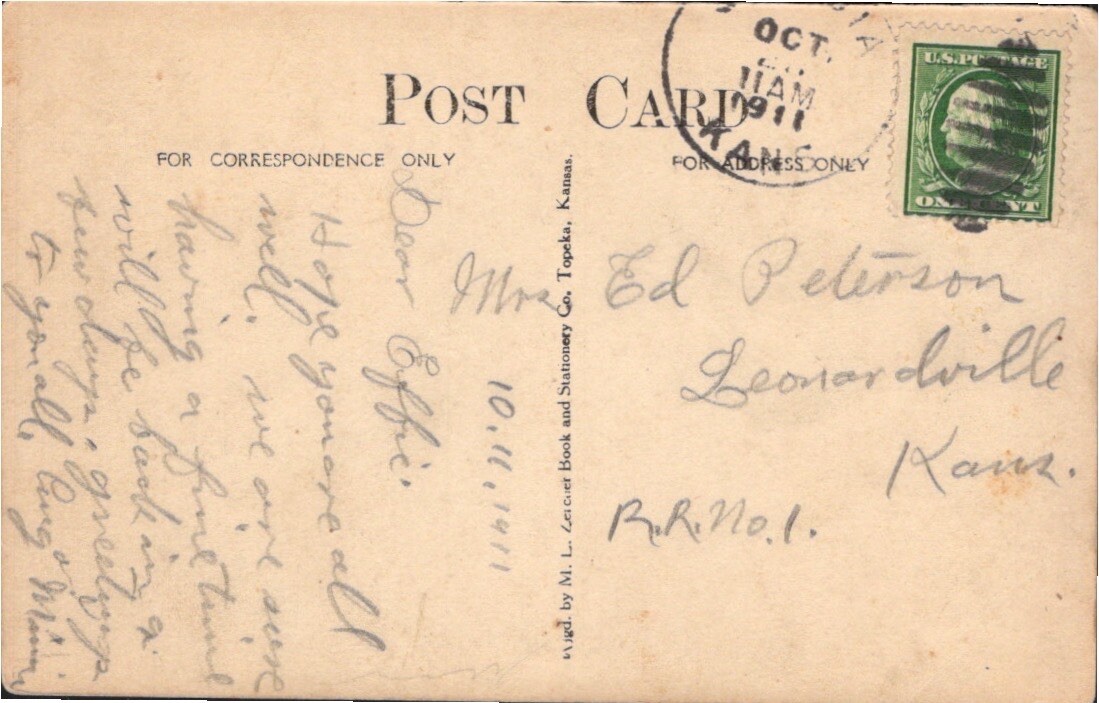 POST CARD
FOR CORRESPONDENCE ONLY
FOR ADDRESS ONLY
OCT.
11 AM
1911
KANS
U.S. POSTAGE
ONE CENT
10.11.1911
Dear Effie.
Hope you are all
well. we are sure
having a fine time
will be back in a
few days. greetings
to you all, Aug &
Mfgd. by M. L. Zercher Book and Stationery Co. Topeka, Kansas.
Mrs Ed Peterson
Leonardville
Kans.
R.R. No. 1.